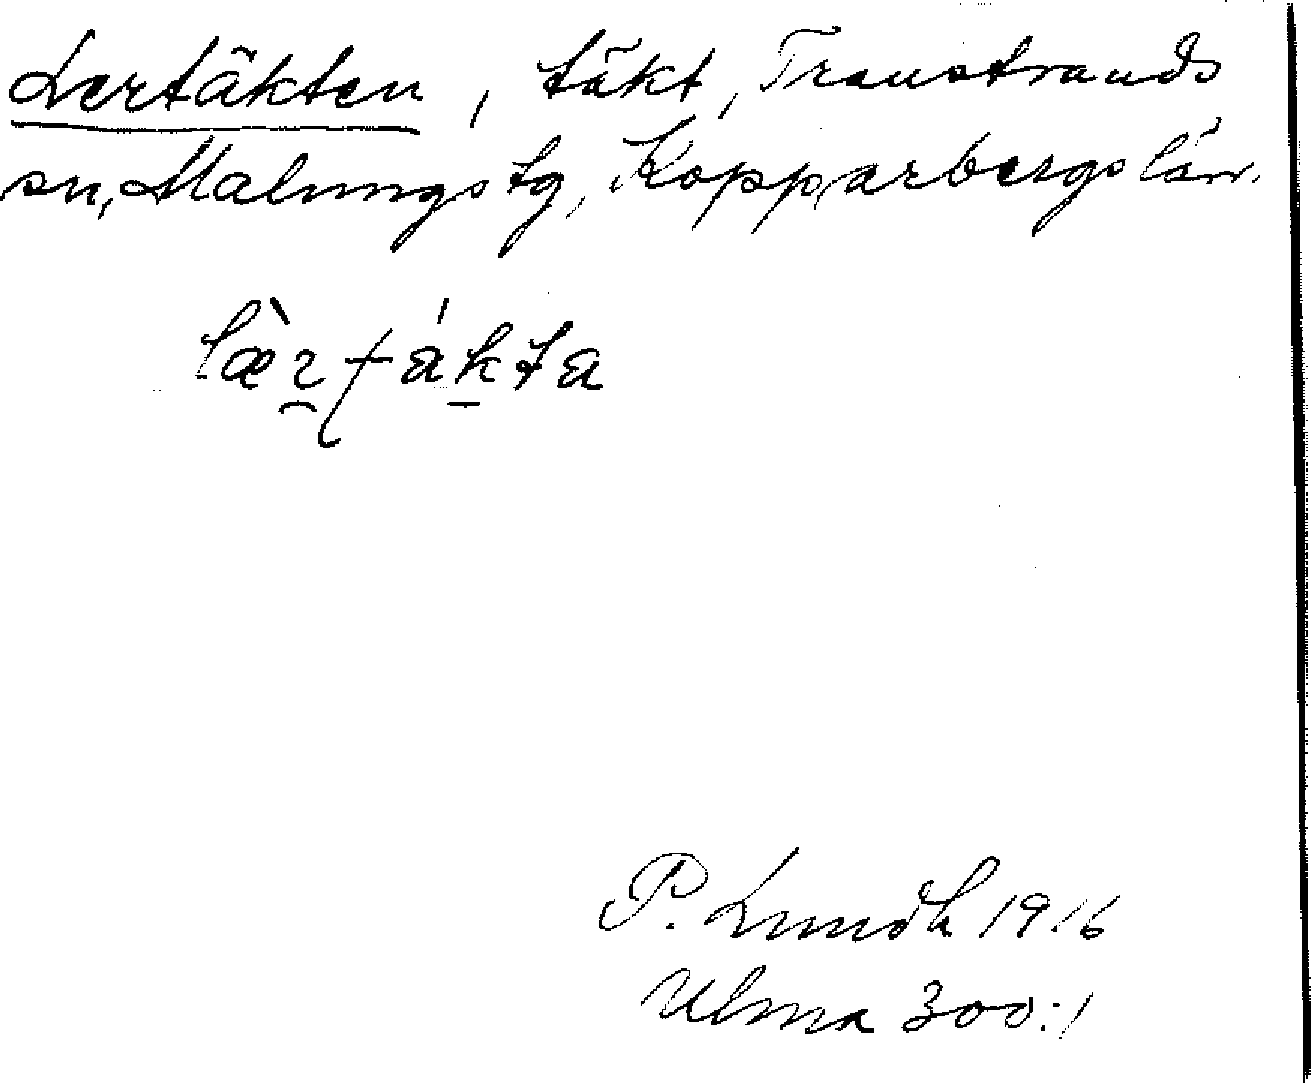 Lertäkten, täkt, Transtrands
sn, Malungs tg, Kopparbergs län.
P. Lundh 1916
Ulma 300:1